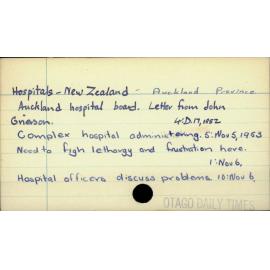 Hospitals - New Zealand - Auckland Province
Auckland hospital board. Letter from John
Grierson. 4:D.17,1952
Complex hospital administering. 5:Nov5,1953
Need to figh lethargy and frustration here.
1:Nov6,
Hospital officers discuss problems. 10:Nov6,
OTAGO DAILY TIMES